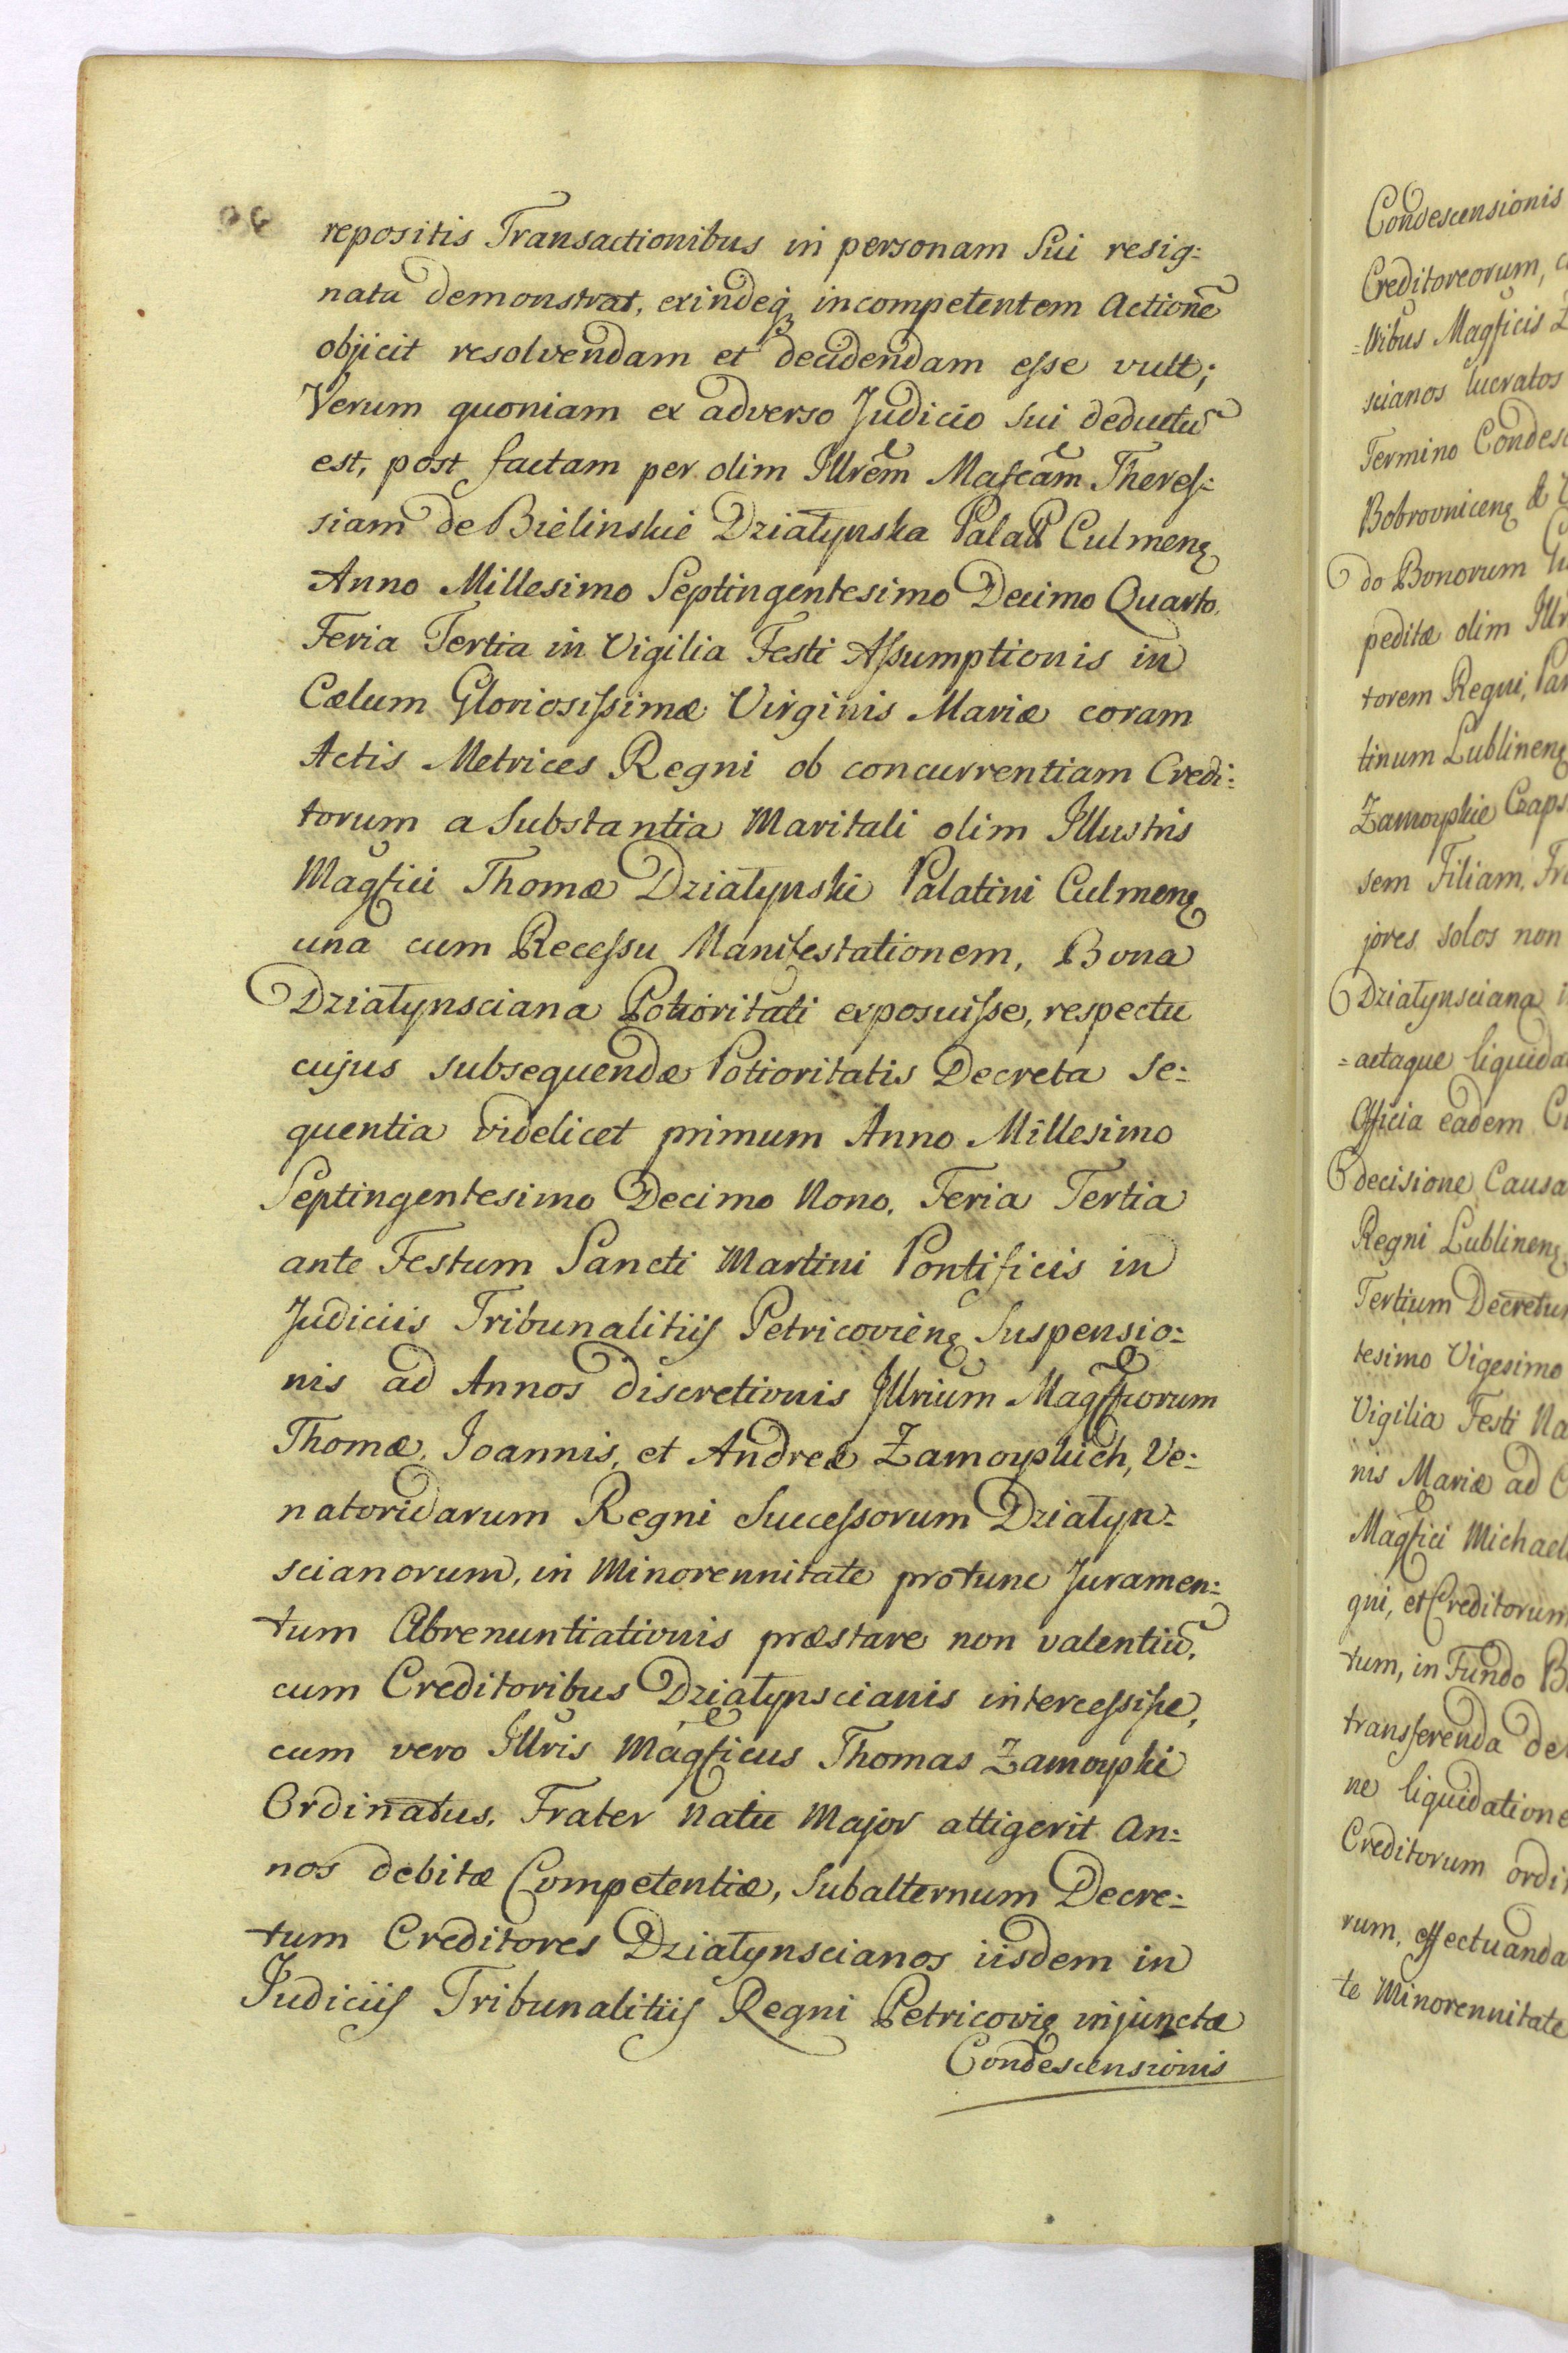 repositis Transactionibus in personam Sui resig:
nata demonstrat, exindeq₃ incompetentem Actionē
objicit resolvendam et decidendam esse vult;
Verum quoniam ex adverso Judicio sui deductū
est, post factam per olim Illrem Magfcam Theres:
siam de Bielinskie Działynska Palat Culmenę
Anno Millesimo Septingentesimo Decimo Quarto.
Feria Tertia in Vigilia Festi Assumptionis in
Cælum Gloriosissimæ Virginis Mariæ coram
Actis Metrices Regni ob concurrentiam Credi:
torum a Substantia Maritali olim Illustris
Magfici Thomæ Działynski Palatini Culmenę
una cum Recessu Manifestationem, Bona
Działynsciana Potioritati exposuisse, respectu
cujus subsequendæ Potioritatis Decreta se:
quentia videlicet primum Anno Millesimo
Septingentesimo Decimo Nono. Feria Tertia
ante Festum Sancti Martini Pontificis in
Judiciis Tribunalitiis Petricovienę Suspensio:
nis ad Annos discretionis Illrium Magficorum
Thomæ, Joannis, et Andreæ Zamoyskich, Ve:
natoridarum Regni Successorum Działyn:
scianorum, in Minorennitate protunc Juramen:
tum Abrenuntiationis præstare non valentiū,
cum Creditoribus Działynscianis intercessisse,
cum vero Illris Magficus Thomas Zamoyski
Ordinatus, Frater Natu Major attigerit An:
nos debitæ Competentiæ, Subalternum Decre:
tum Creditores Działynscianos iisdem in
Judiciis Tribunalitiis Regni Petricovię injunctæ
Condescensionis
Condescensionis
Creditoreorum,
tribus Magficis
scianos lucratos
Termino
Bobrovnicenę &
do Bonorum
peditæ olim
torem Regni,
tinum Lublinenę
Zamoyskie
sem Filiam,
jores solos non
Działynsciana
=actaque
Officia eadem
decisione Causa
Regni Lublinenę
Tertium
tesimo Vigesimo
Vigilia Festi
nis Mariæ ad
Magfici
qni, et Creditorum
tum, in Fundo
transferenda
ne
Creditorum
rum, effectuanda
te Minorennitate